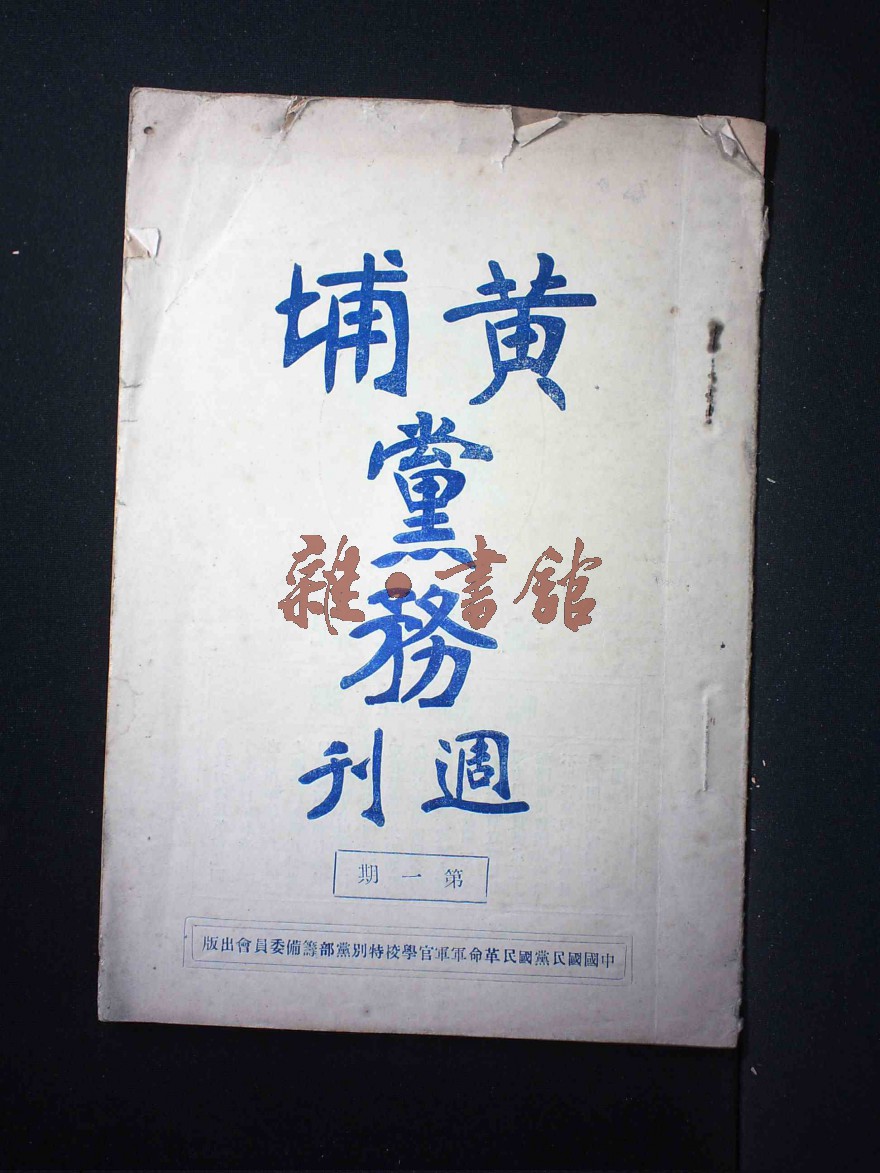 黄埔
黨
務
週刊
雜·書館
第一期
中國國民黨國民革命軍軍官學校特別黨部籌備委員會出版